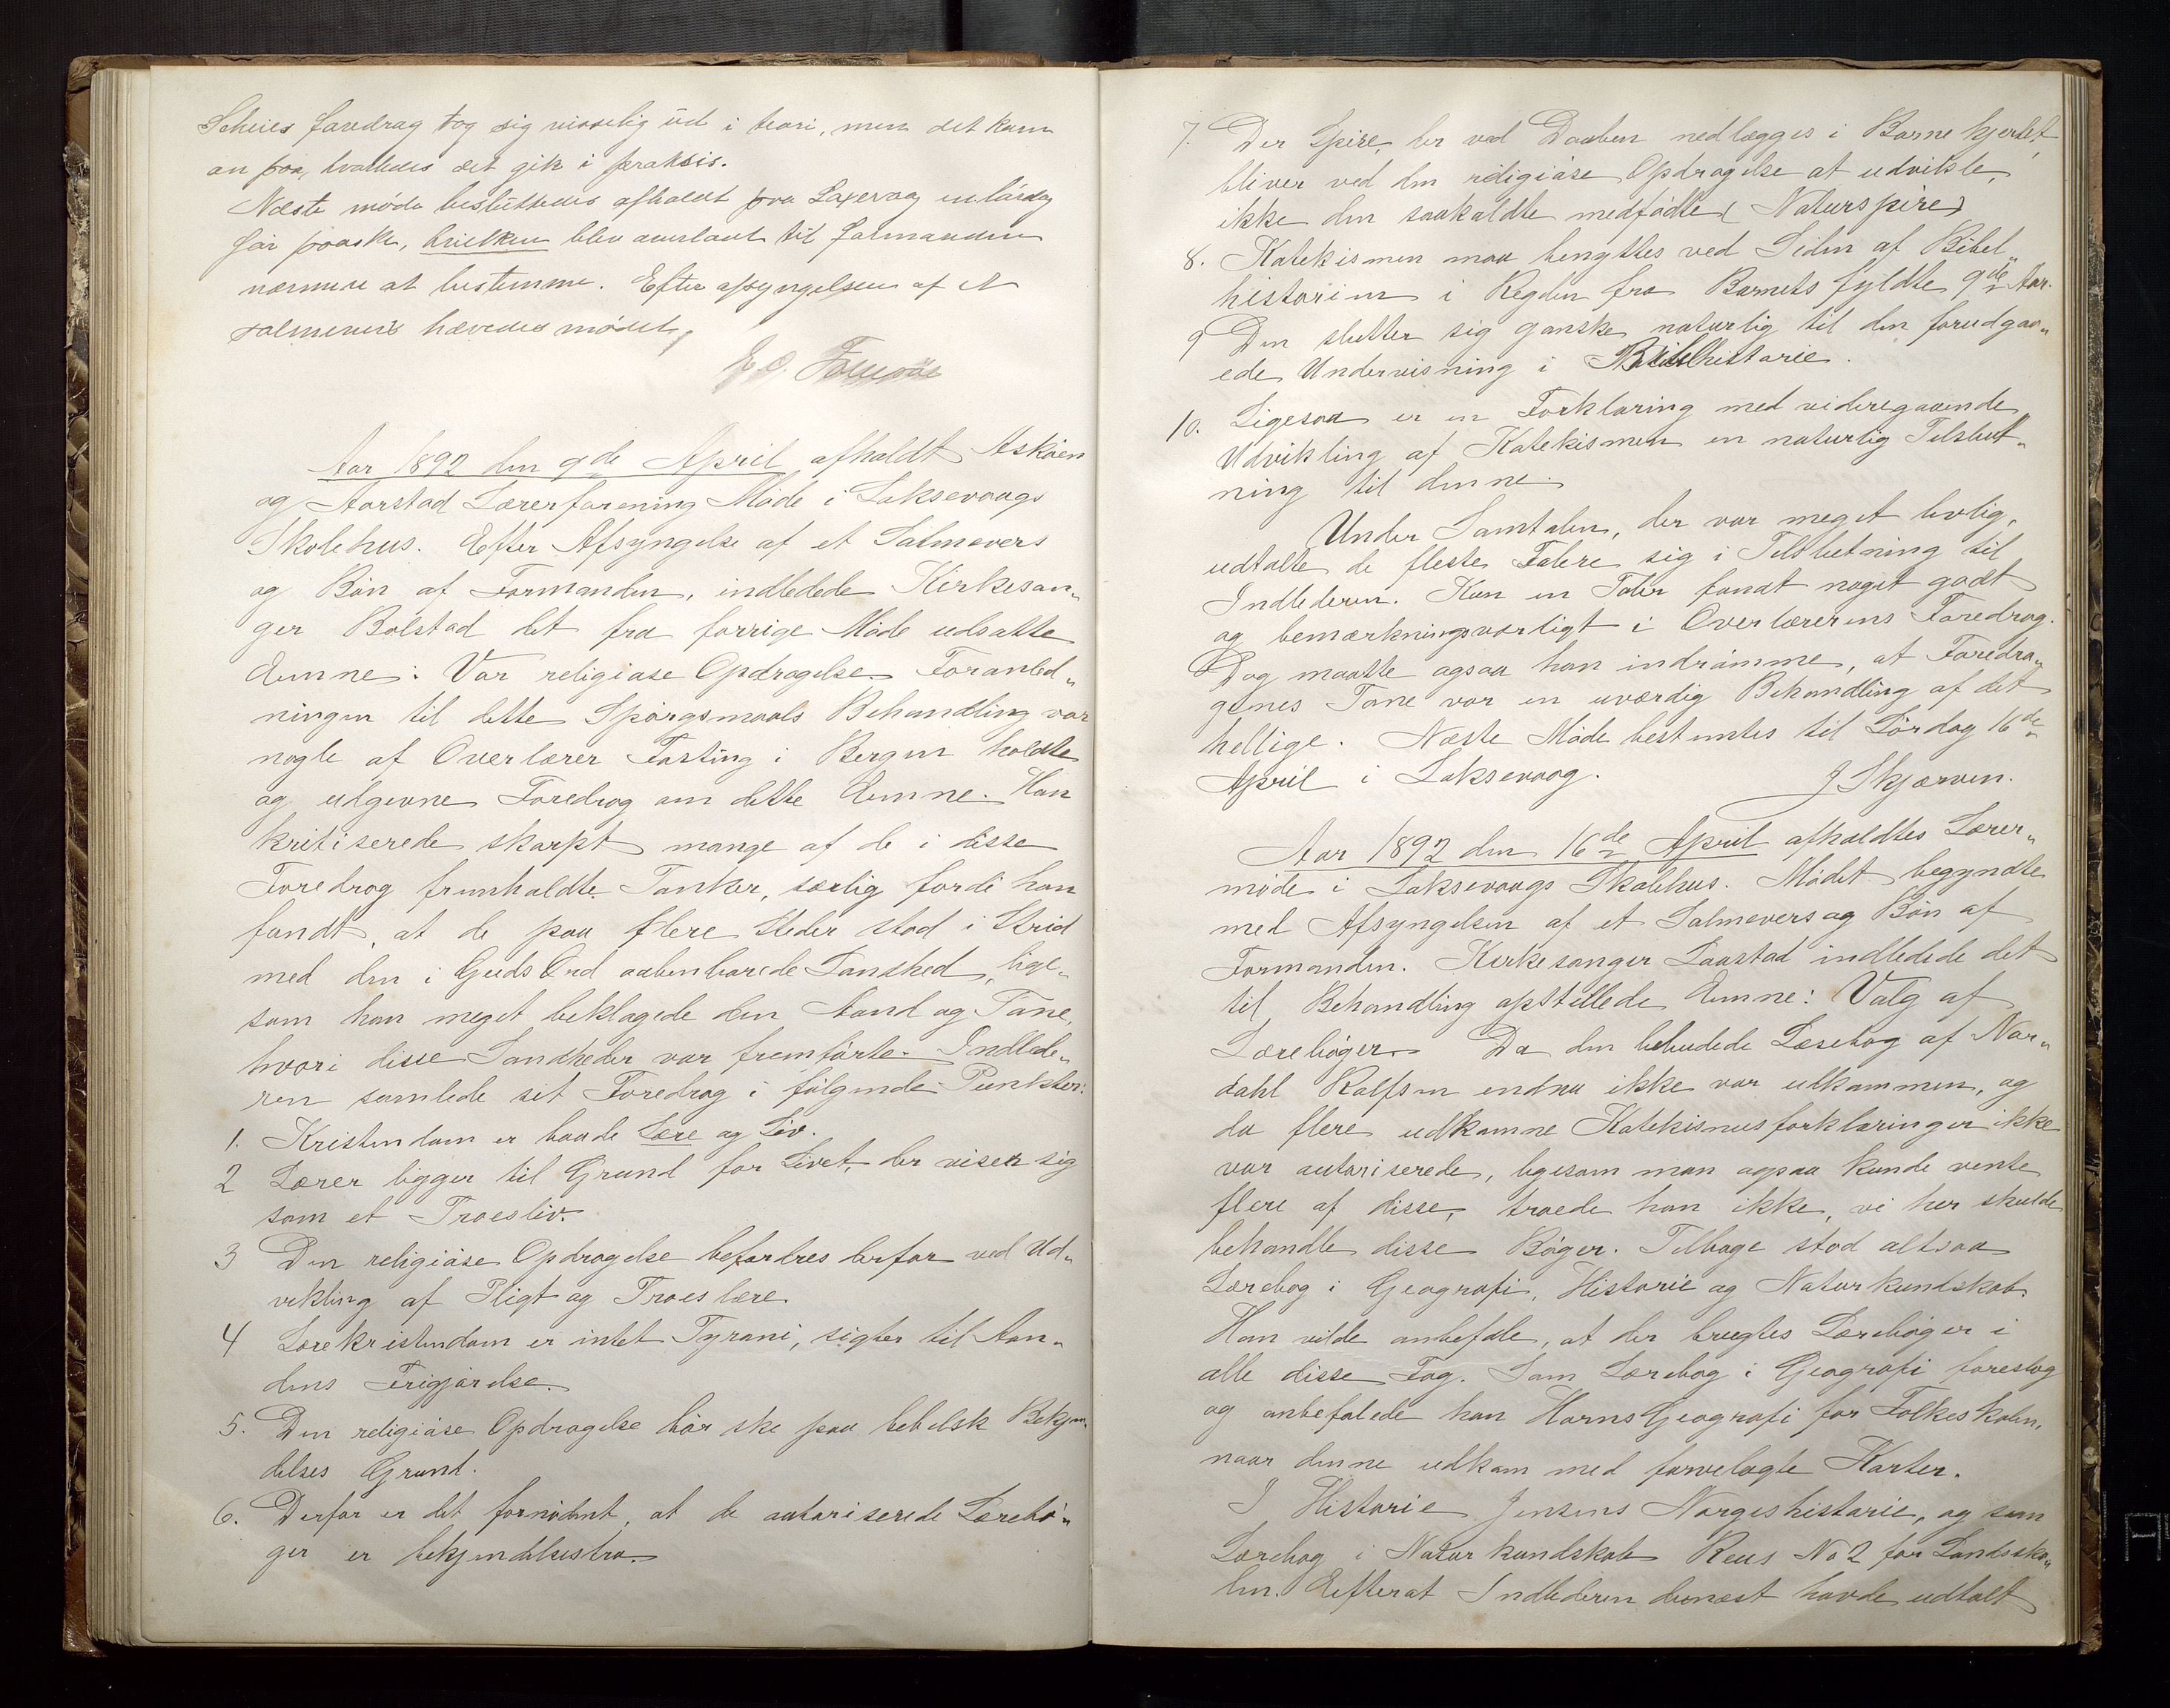 Scheies foredrag tog sig visselig ud i teori, men det kom
an paa, hvorledes det gik i praksis.
Næste møde besluttedes afholdt paa Laxevaag en lørdag
før paaske, hvilken blev overladt til formanden
nærmere at bestemme. Efter afsyngelsen af et
salmevers hævedes mødet,
Aar 1892 den 9de April afholdt Askøen
og Aarstad Lærerforening Møde i Laksevaags
Skolehus. Efter Afsyngelse af et Salmevers
og Bøn af Formanden, indledede Kirkesan„
ger Bolstad det fra forrige Møde udsatte
Emne: Vor religiøse Opdragelse. Foranled„
ningen til dette Spørgsmaals Behandling var
nogle af Overlærer Fasting i Bergen holdte
og udgivne Foredrag om dette Emne. Han
kritiserede skarpt mange af de i disse
Foredrag fremholdte Tanker, særlig fordi han
fandt, at de paa flere Steder stod i Strid
med den i Guds Ord aabenbarede Sandhed, lige„
som han meget beklagede den Aand og Tone,
hvori disse Sandheder var fremførte. Indlede„
ren samlede sit Foredrag i følgende Punkter:
1. Kristendom er baade Lære og Liv.
2 Lærer ligger til Grund for Livet, der viser sig
som et Troesliv.
3 Den religiøse Opdragelse befordres derfor ved Ud„
vikling af Pligt og Troeslære
4 Lærekristendom er intet Tyrani, sigter til Aan„
dens Frigjørelse.
5. Den religiøse Opdragelse bør ske paa bibelsk Bekjen„
delses Grund.
6. Derfor er det fornødent, at de autoriserede Lærebø„
ger er bekjendelsestro.
7. Der Spire, der ved Daaben nedlægges i Barnehjertet,
bliver ved den religiøse Opdragelse at udvikle,
ikke den saakaldte medfødte (Naturspire)
8. Katekismen maa benyttes ved Siden af Bibel„
historien i Reglen fra Barnets fyldte 9de Aar.
9 Den slutter sig ganske naturlig til den forudgaa„
ede Undervisning i Bibelhistorie.
10. Ligesaa er en Forklaring med videregaaende
Udvikling af Katekismen en naturlig Tilslut„
ning til denne.
Under Samtalen, der var meget livlig,
udtalte de fleste Talere sig i Tilslutning til
Indlederen. Kun en Taler fandt noget godt
og bemærkningsværdigt i Overlærerens Foredrag.
Dog maatte ogsaa han indrømme, at Foredra„
genes Tone var en uværdig Behandling af det
hellige. Næste Møde bestemtes til Lørdag 16de
April i Laksevaag.
J Skjærven.
Aar 1892 den 16de April afholdtes Lærer„
møde i Laksevaags Skolehus. Mødet begyndte
med Afsyngelsen af et Salmevers og Bøn af
Formanden. Kirkesanger Laastad indledede det
til Behandling opstillede Emne: Valg af
Lærebøger. Da den bebudede Læsebog af Nor„
dahl Rolfsen endnu ikke var udkommen, og
da flere udkomne Katekismusforklaringer ikke
var autoriserede, ligesom man ogsaa kunde vente
flere af disse, troede han ikke, vi her skulde
behandle disse Bøger. Tilbage stod altsaa
Lærebog i Geografi, Historie og Naturkundskab.
Han vilde anbefale, at der brugtes Lærebøger i
alle disse Fag. Som Lærebog i Geografi foreslog
og anbefalede han Horns Geografi for Folkeskolen,
naar denne udkom med farvelagte Karter.
I Historie Jensens Norgeshistorie, og som
Lærebog i Naturkundskab Reus No 2 for Landssko„
len. Efterat Indlederen dernæst havde udtalt